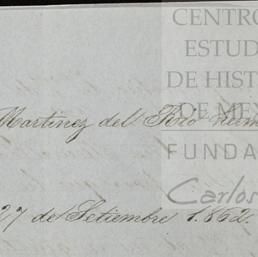 CENTRO
ESTUD
DE HIST
DE ME
Martinez del Rio
FUNDA
Carlos
27 de Setiembre 1862.